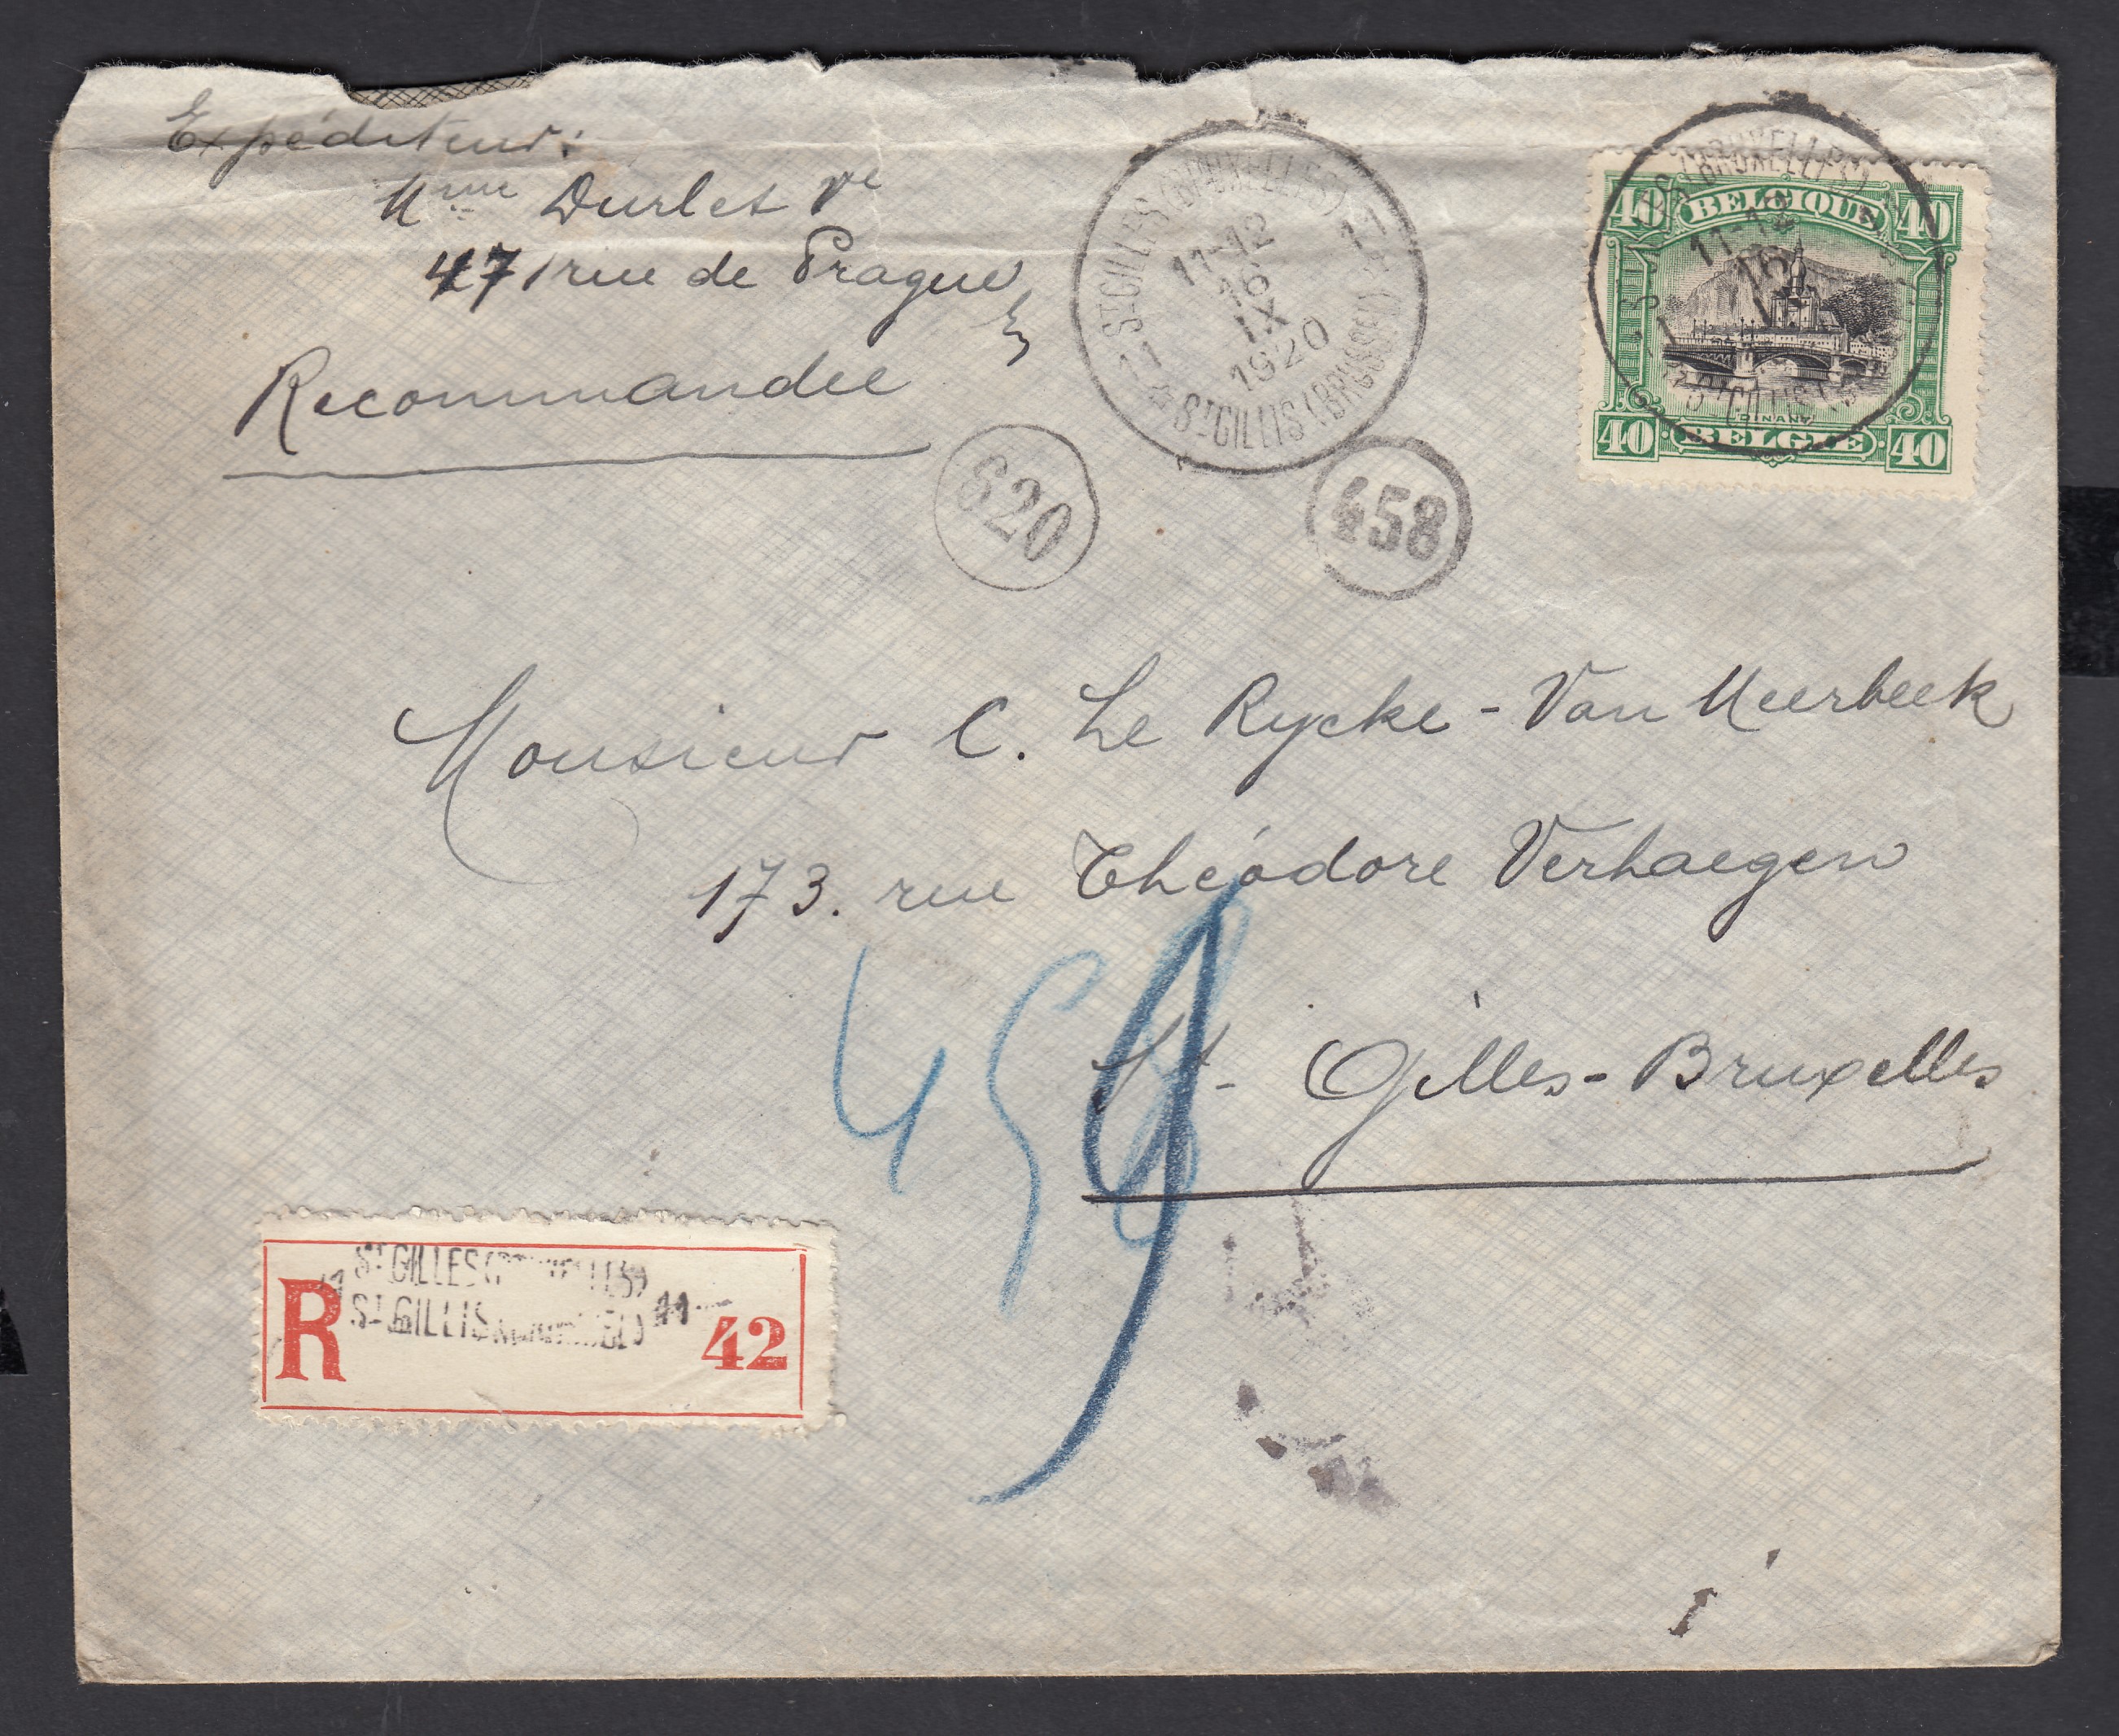 Expéditeur:
Mme Durlet Ve
47 rue de Prague
Recommandée
ST GILLES (BRUXELLES)
11-12
16
IX
1920
11
11
ST GILLIS (BRUSSEL)
620
458
40 BELGIQUE 40
11-12
16
DINANT
40 BELGIË 40
Monsieur C. Le Rycke - Van Meerbeek
173. rue Théodore Verhaegen
St-Gilles-Bruxelles
45
9
ST GILLES
ST GILLIS 11
R 42